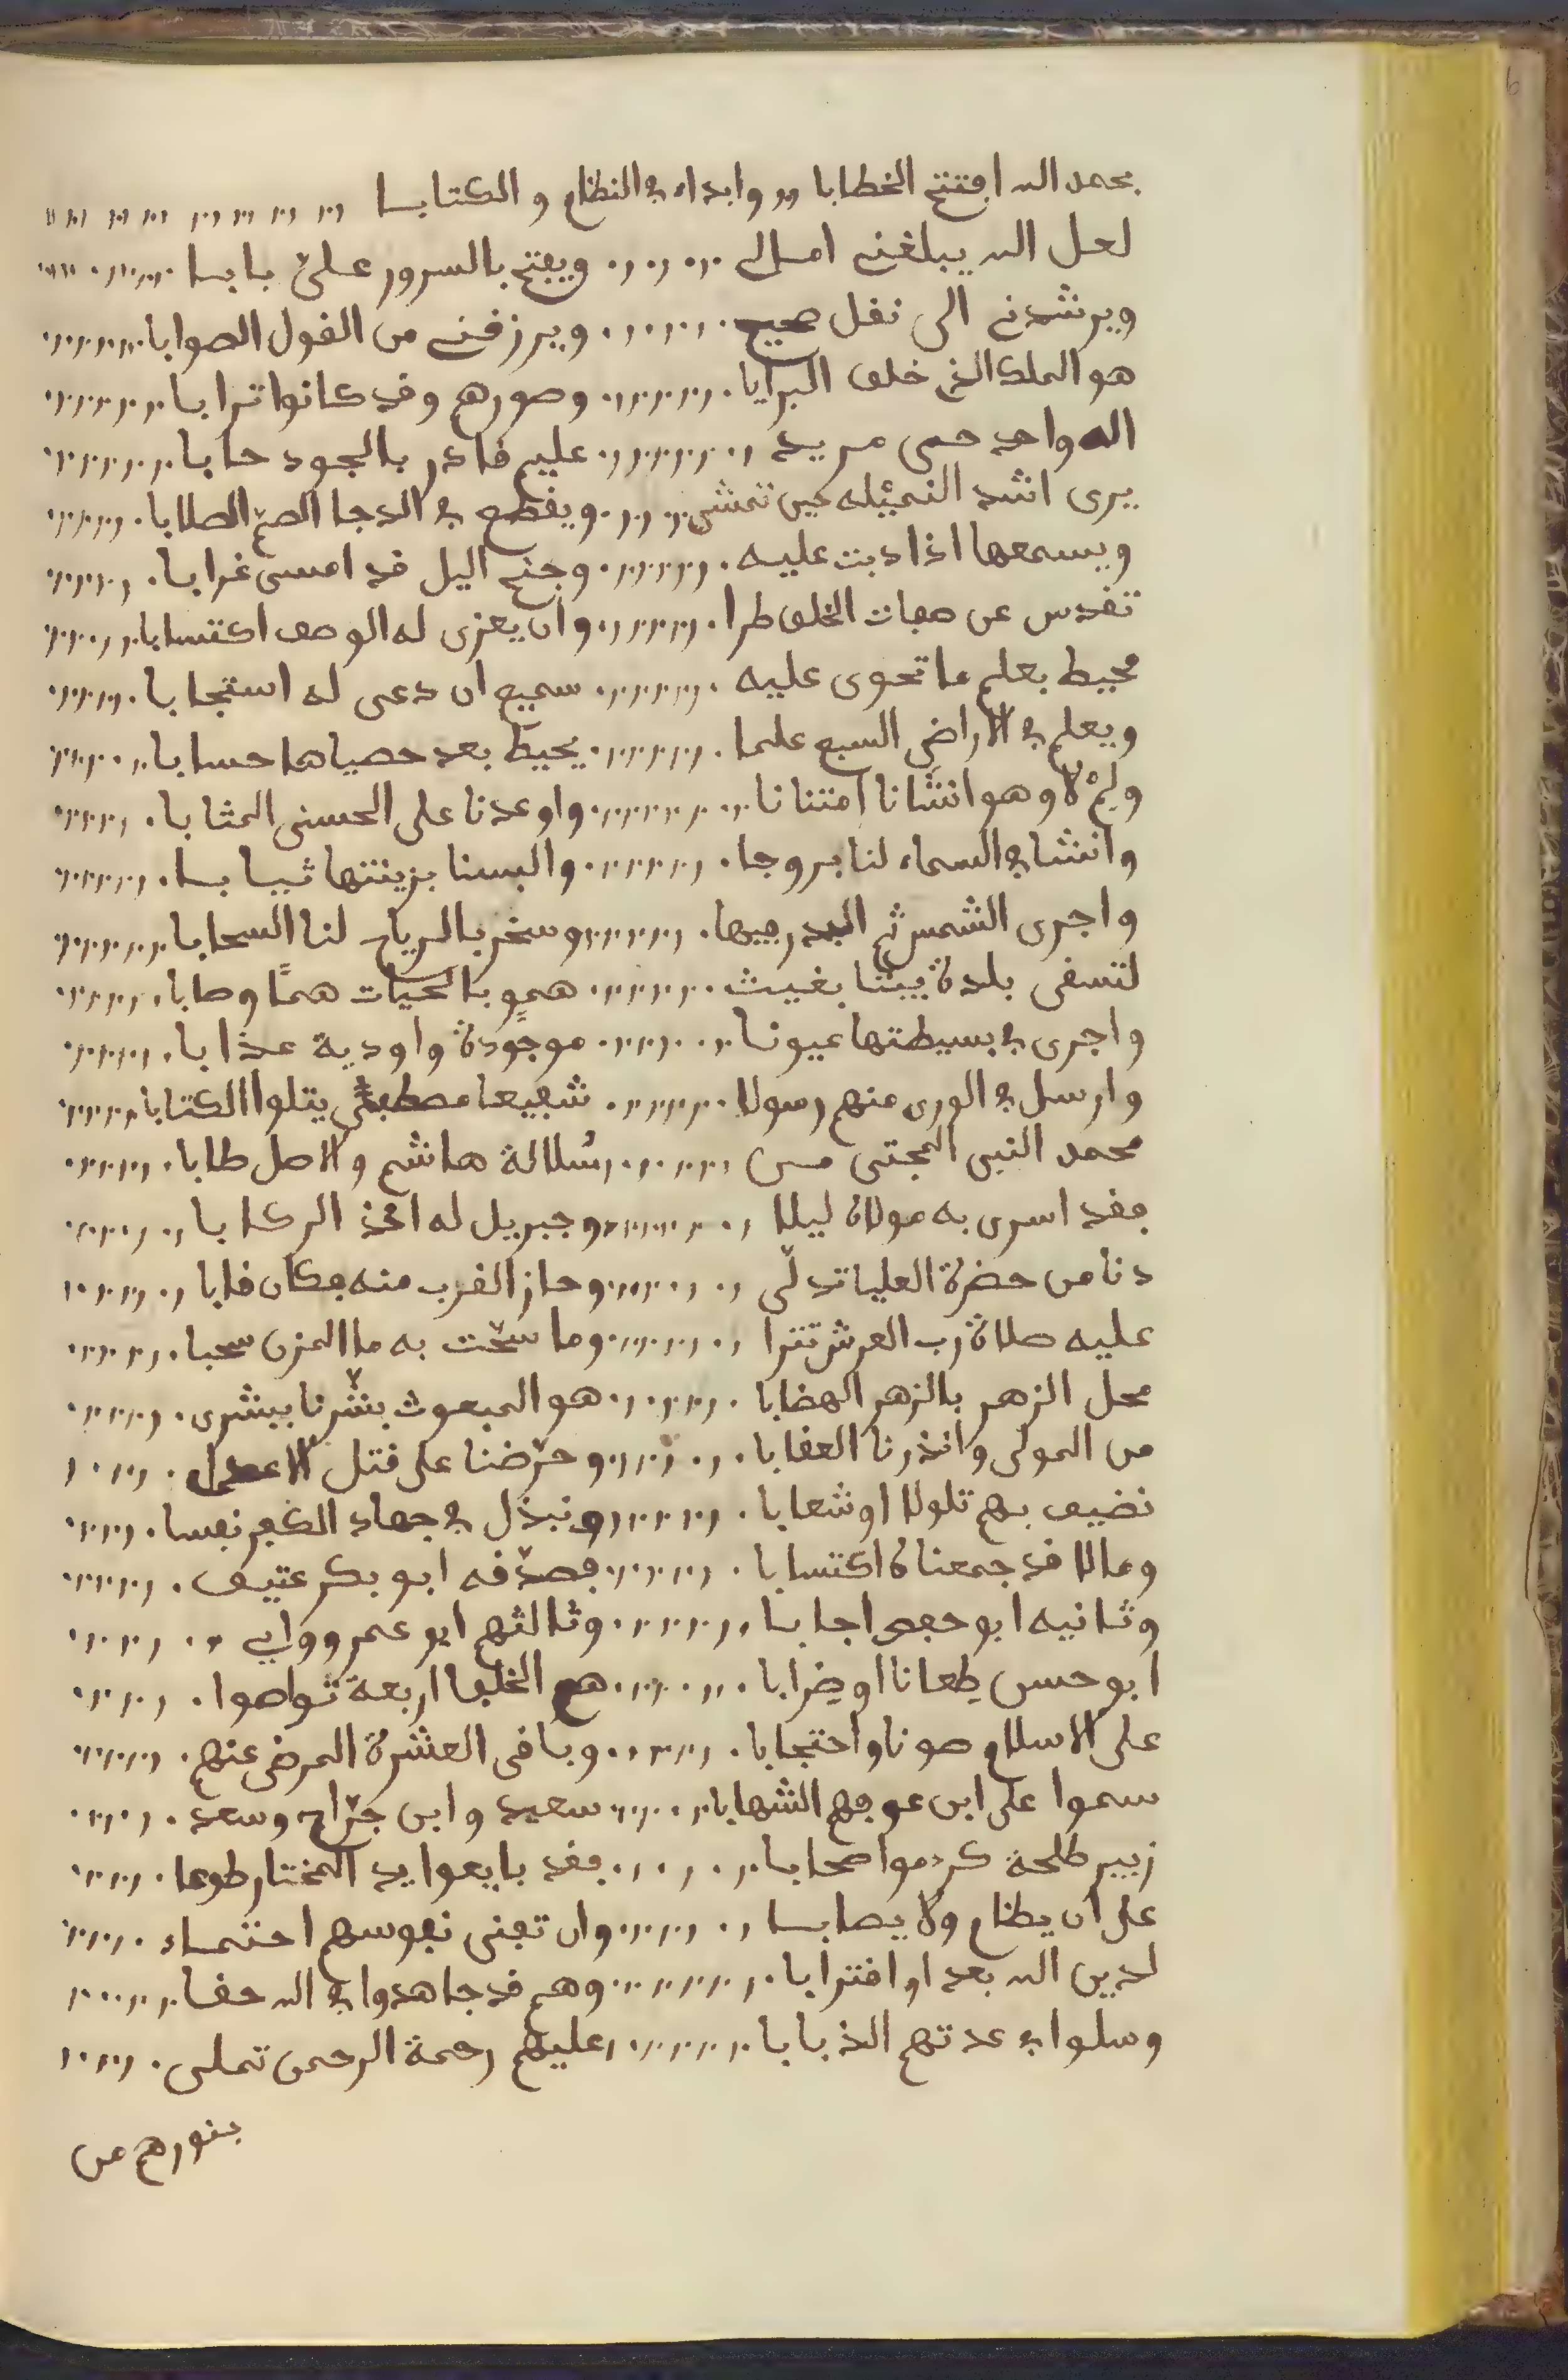 بحمد الله افتتح الخطابا وابداء في النظام و الكتابا
لعل الله يبلغني امالي ويفتح بالسرور علىّ بابا
ويرشدني الى نقل صحيح ويرزقني من القول الصوابا
هو الملك الذي خلق البرايا وصورهم وقد كانوا ترابا
اله واحد حي مريد عليم قادر بالجود حابا
يرى اشد النميله حين تمشي ويقطع في الدجا الصم الصلابا
ويسمعها اذا دبت عليه وجنح اليل قد امسى غرابا
تقدس عن صفات الخلق طرا وان يعزى له الوصف اكتسابا
محيط بعلم ما تحوى عليه سميع ان دعى له استجابا
ويعلم في الاراضي السبع علما يحيط بعد حصياها حسابا
ولم لا وهو انشانا امتنانا واوعدنا على الحسنى المثابا
وانشا في السماء لنا بروجا والبسنا بزينتها ثيابا
واجرى الشمس ثم البدر فيها وسخر بالرياح لنا السحابا
لتسقى بلدة ميتا بغيث همو بالحيات همًا وصابا
واجرى في بسيطتها عيونا موجودة واودية عذابا
وارسل في الورى منهم رسولا شفيعا مصطفى يتلوا الكتابا
محمد النبي المجتبى من سُلالة هاشم والاصل طابا
فقد اسرى به مولاه ليلا وجبريل له اخذ الركابا
دنا من حضرة العليا تدلّى وحاز القرب منه فكان قابا
عليه صلاة رب العرش تترا وما سحّت به ما المزن سحبا
محل الزهر بالزهر الهضابا هو المبعوث بشّرنا ببشرى
من المولى وانذرنا العقابا وحرّضنا على قتل الاعدى
نضيف بهم تلولا او شعابا ونبذل في جهاد الكفر نفسا
ومالا قد جمعناه اكتسابا فصدّقه ابو بكر عتيق
وثانيه ابو حفص اجابا وثالثهم ابو عمرو ووافى
ابو حسن طِعانا او ضِرابا هم الخلفا اربعة تواصوا
على الاسلام صونا واحتجابا وباقى العشرة المرضى عنهم
سموا على ابن عوفهم الشهابا سعيد وابن جرّاح وسعد
زبير طلحة كرموا صحابا فقد بايعوا يد المختار طوعا
على ان يظام ولا يصابا وان تفنى نفوسهم احتماء
لدين الله بعد او اقترابا وهم قد جاهدوا في الله حقا
وسلوا في عدتهم الذبابا عليهم رحمة الرحمن تملى
بنورهم من